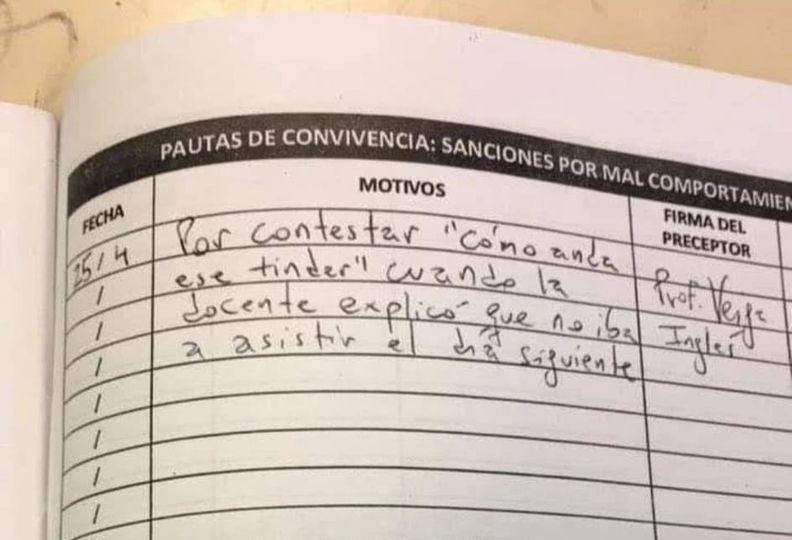 PAUTAS DE CONVIVENCIA: SANCIONES POR MAL COMPORTAMIEN
FECHA
MOTIVOS
FIRMA DEL
PRECEPTOR
25/4
Por contestar "cómo anda
ese tinder" cuando la
docente explicó que no iba
a asistir el día siguiente
Prof.
Inglés
/
/
/
/
/
/
/